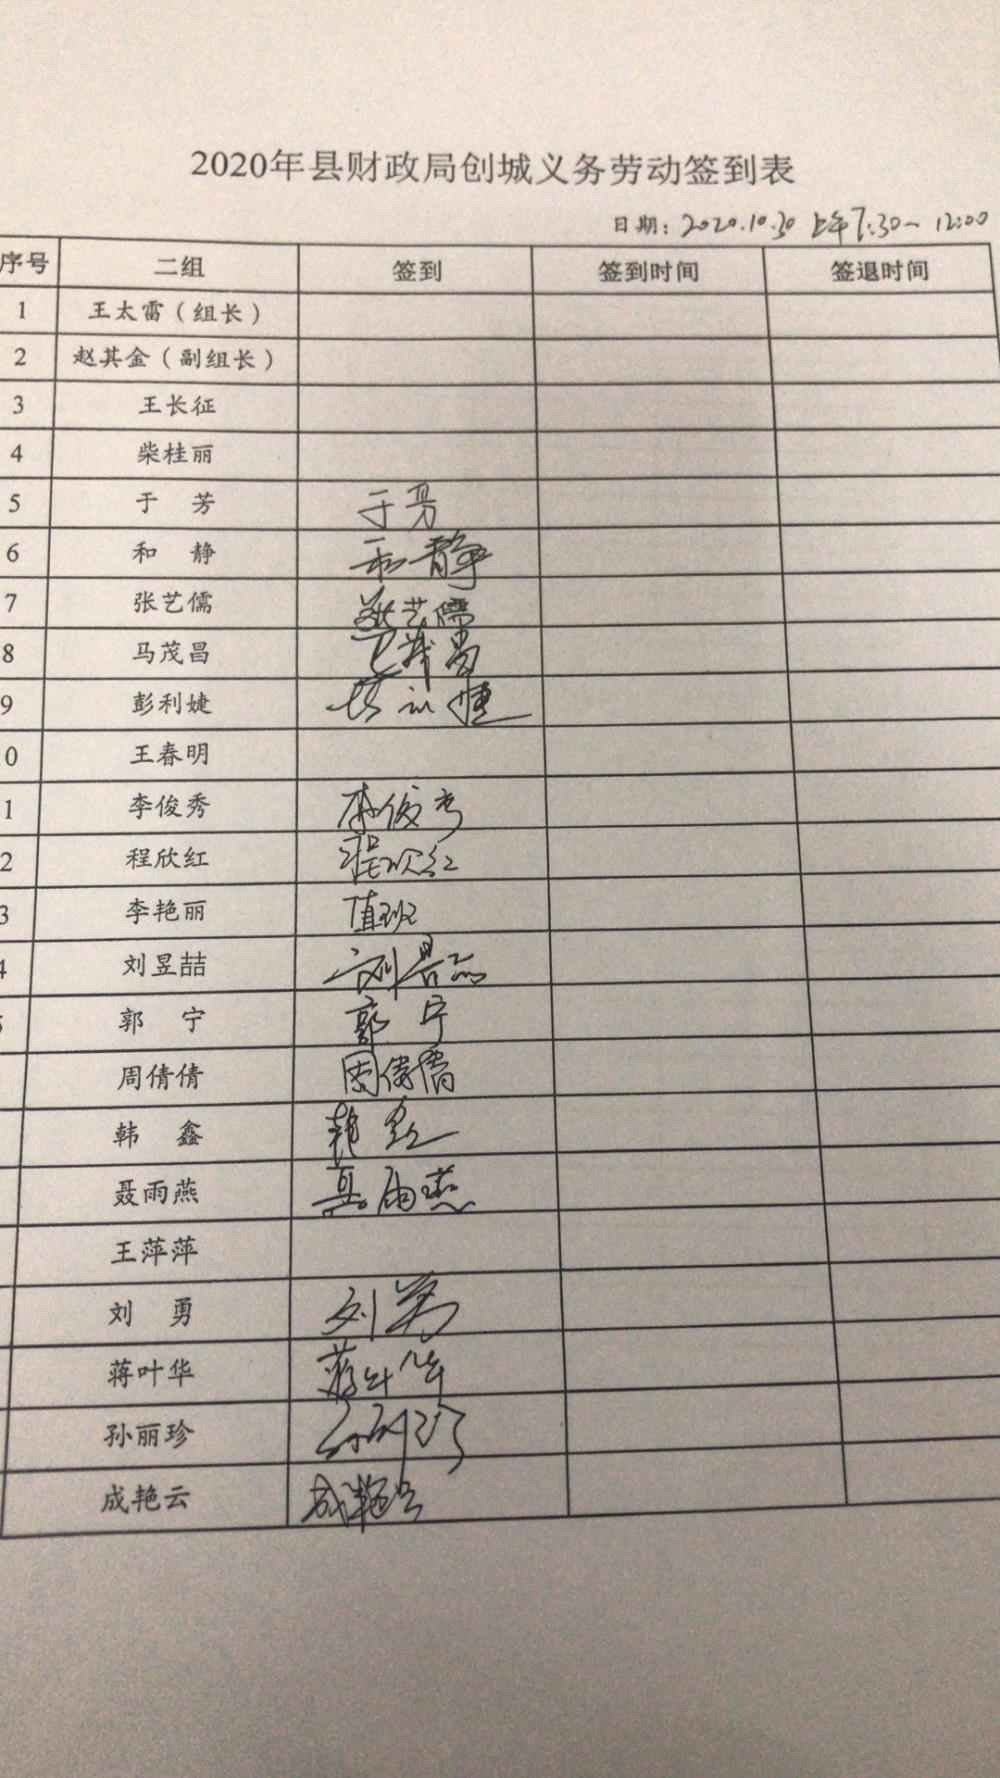 2020年县财政局创城义务劳动签到表
日期: 2020.10.30 上午7:30~12:00
序号 二组 签到 签到时间 签退时间
1 王太雷（组长）
2 赵其金（副组长）
3 王长征
4 柴桂丽
5 于 芳 于芳
6 和 静 和静
7 张艺儒 张艺儒
8 马茂昌 马茂昌
9 彭利婕 彭利婕
0 王春明
1 李俊秀 李俊秀
2 程欣红 程欣红
3 李艳丽 值班
4 刘昱喆 刘昱喆
5 郭 宁 郭宁
周倩倩 周倩倩
韩 鑫 韩鑫
聂雨燕 聂雨燕
王萍萍
刘 勇 刘勇
蒋叶华 蒋叶华
孙丽珍 孙丽珍
成艳云 成艳云